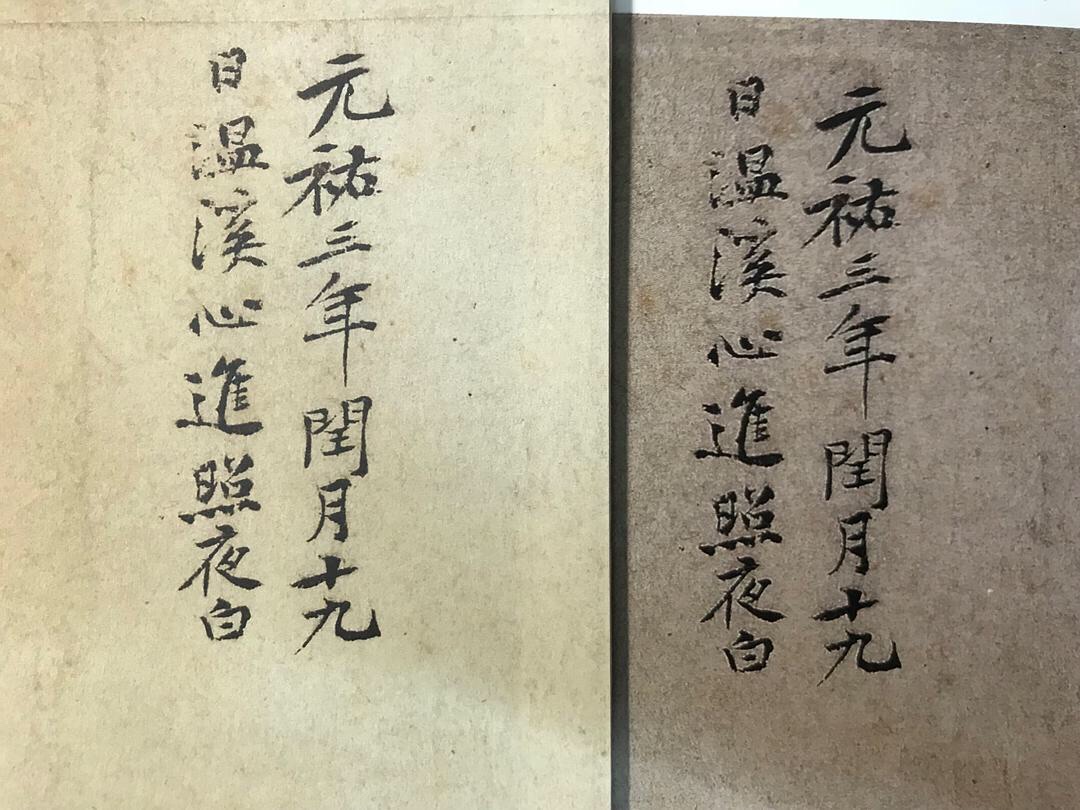 元祐三年閏月十九
日温溪心進照夜白
元祐三年閏月十九
日温溪心進照夜白